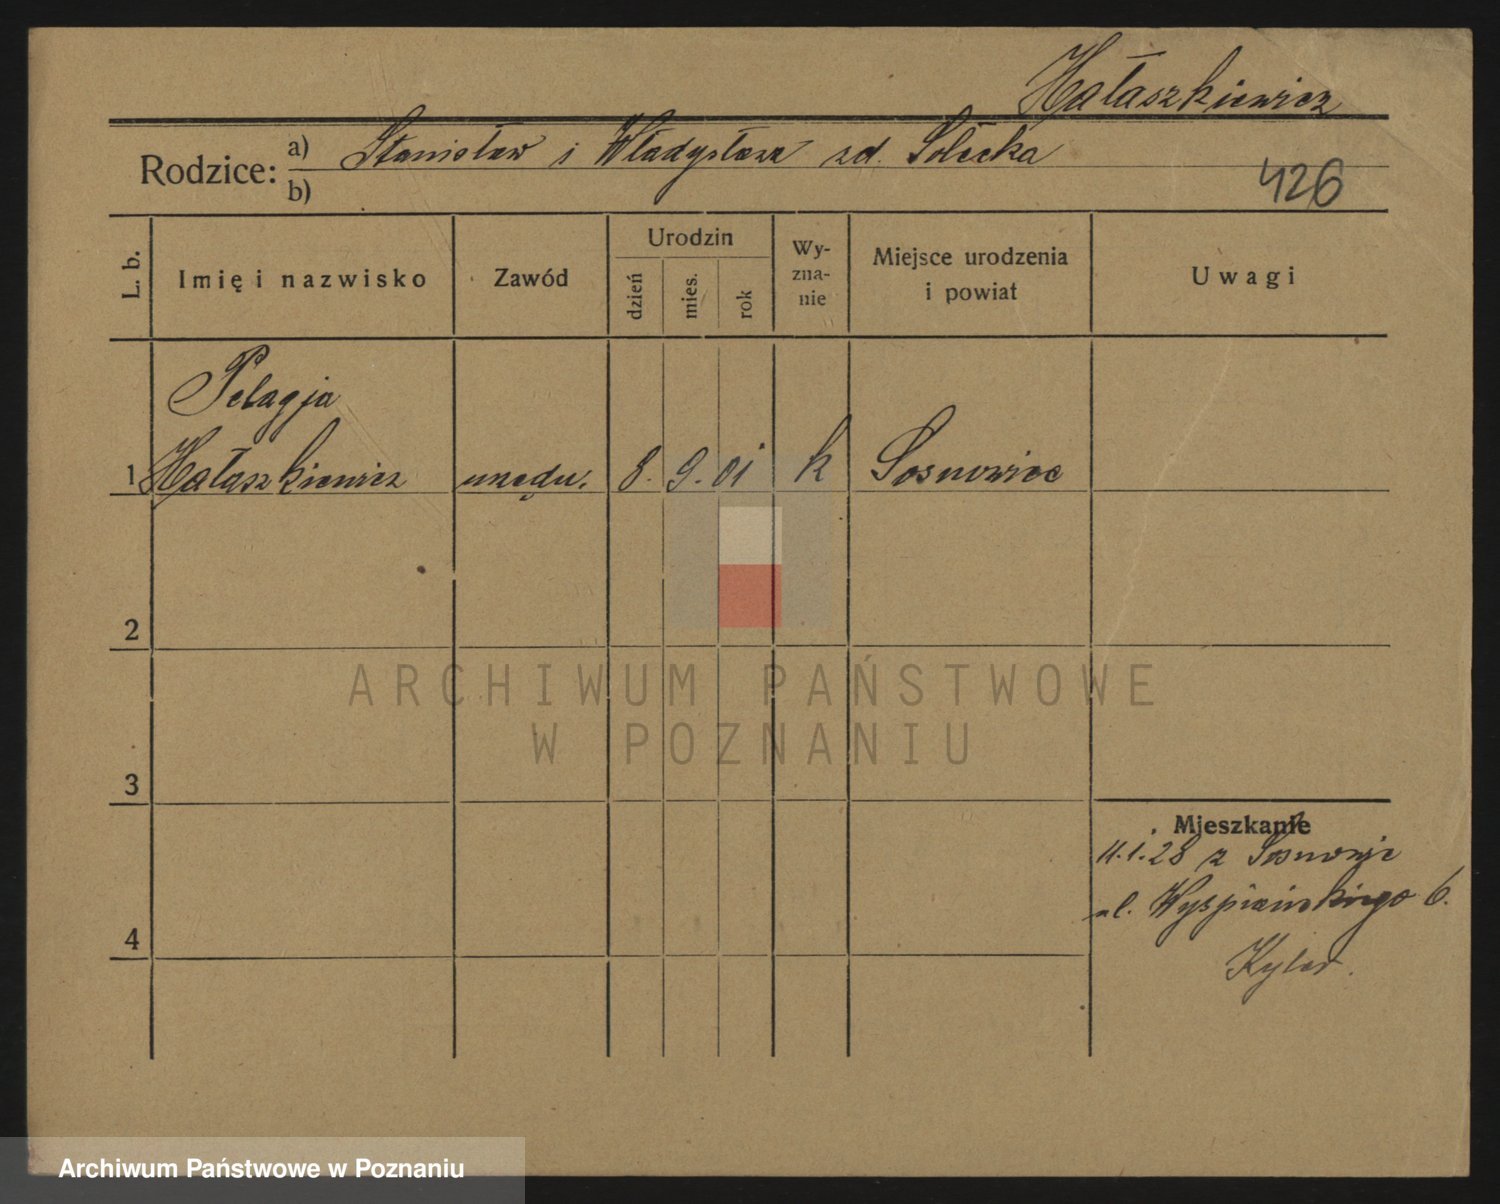 Hałaszkiewicz
Rodzice: a) Stanisław i Władysława zd. Solecka
b)
426
L. b.
Imię i nazwisko
Zawód
Urodzin
dzień
mies.
rok
Wy-
zna-
nie
Miejsce urodzenia
i powiat
Uwagi
Pelagja
1 Hałaszkiewicz urzędn. 8. 9. 01 k Sosnowiec
2
ARCHIWUM PAŃSTWOWE
W POZNANIU
3
Mieszkanie
11.1.28 z Sosnowic
4
ul. Wyspiańskiego 6.
Archiwum Państwowe w Poznaniu